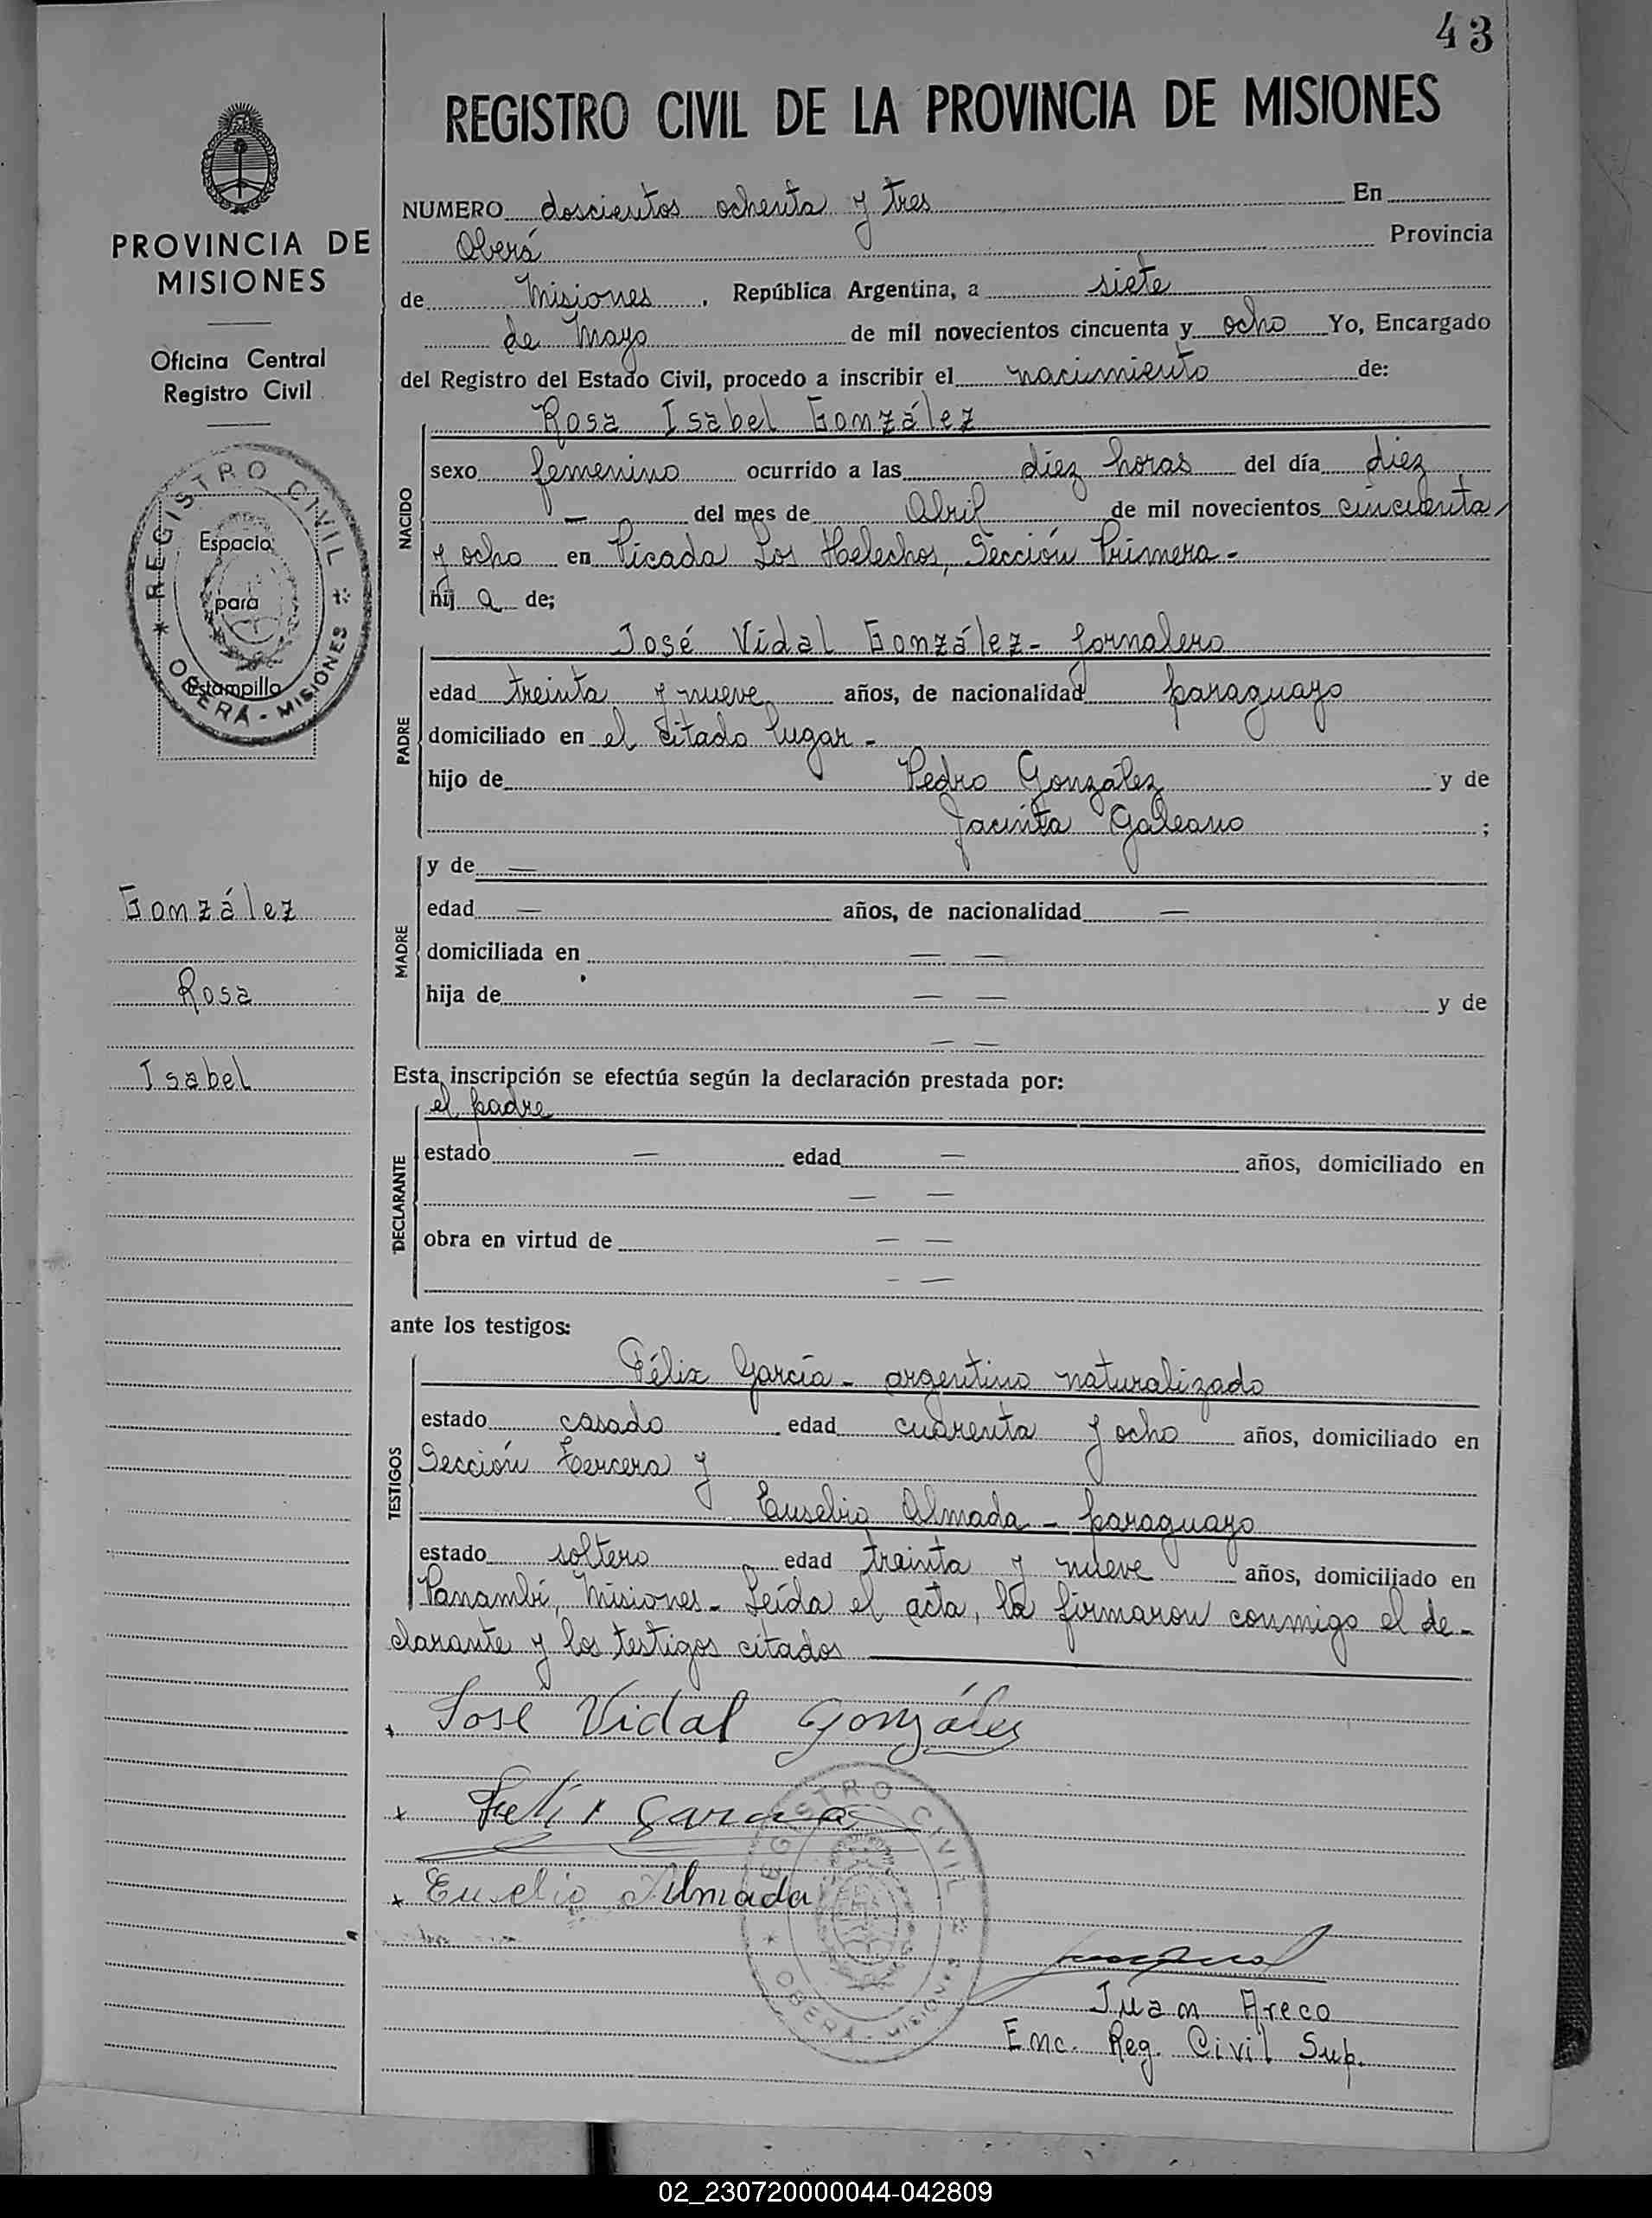 43
REGISTRO CIVIL DE LA PROVINCIA DE MISIONES
PROVINCIA DE
MISIONES
Oficina Central
Registro Civil
REGISTRO CIVIL
OBERA - MISIONES
Espacio
para
Estampilla
González
Rosa
Isabel
NUMERO doscientos ochenta y tres En
Oberá Provincia
de Misiones, República Argentina, a siete
de Mayo de mil novecientos cincuenta y ocho Yo, Encargado
del Registro del Estado Civil, procedo a inscribir el nacimiento de:
NACIDO
Rosa Isabel González
sexo femenino ocurrido a las diez horas del día diez
— del mes de Abril de mil novecientos cincuenta
y ocho en Picada Los Helechos, Sección Primera -
hij a de;
PADRE
José Vidal González - Jornalero
edad treinta y nueve años, de nacionalidad paraguayo
domiciliado en el citado lugar -
hijo de Pedro González y de
Jacinta Galeano ;
MADRE
y de —
edad — años, de nacionalidad —
domiciliada en — —
hija de — — y de
— —
Esta inscripción se efectúa según la declaración prestada por:
DECLARANTE
el padre
estado — edad — años, domiciliado en
— —
obra en virtud de — —
- —
ante los testigos:
TESTIGOS
Félix García - argentino naturalizado
estado casado edad cuarenta y ocho años, domiciliado en
Sección Tercera y
Eusebio Almada - paraguayo
estado soltero edad treinta y nueve años, domiciliado en
Panambí, Misiones - Leída el acta, la firmaron conmigo el de-
clarante y los testigos citados
José Vidal Gonzáles
Felix Garcia
Eusebio Almada
REGISTRO CIVIL
OBERA - MISIONES
Juan Areco
Enc. Reg. Civil Sup.
02_230720000044-042809